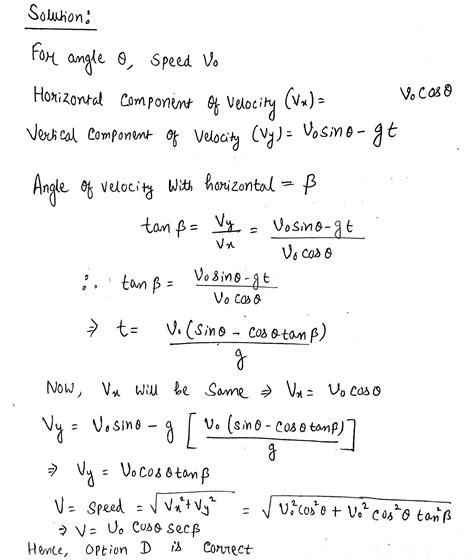 Solution:
For angle θ, speed V₀
Horizontal Component of Velocity (Vₓ) = V₀ cos θ
Vertical Component of Velocity (Vy) = V₀ sin θ - gt
Angle of velocity with horizontal = β
tan β = Vy/Vₓ = (V₀ sin θ - gt)/(V₀ cos θ)
∴ tan β = (V₀ sin θ - gt)/(V₀ cos θ)
⇒ t = V₀ (sin θ - cos θ tan β)/g
Now, Vₓ will be same ⇒ Vₓ = V₀ cos θ
Vy = V₀ sin θ - g [V₀ (sin θ - cos θ tan β)/g]
⇒ Vy = V₀ cos θ tan β
V = speed = √(Vₓ² + Vy²) = √(V₀² cos² θ + V₀² cos² θ tan² β)
⇒ V = V₀ cos θ sec β
Hence, option D is correct